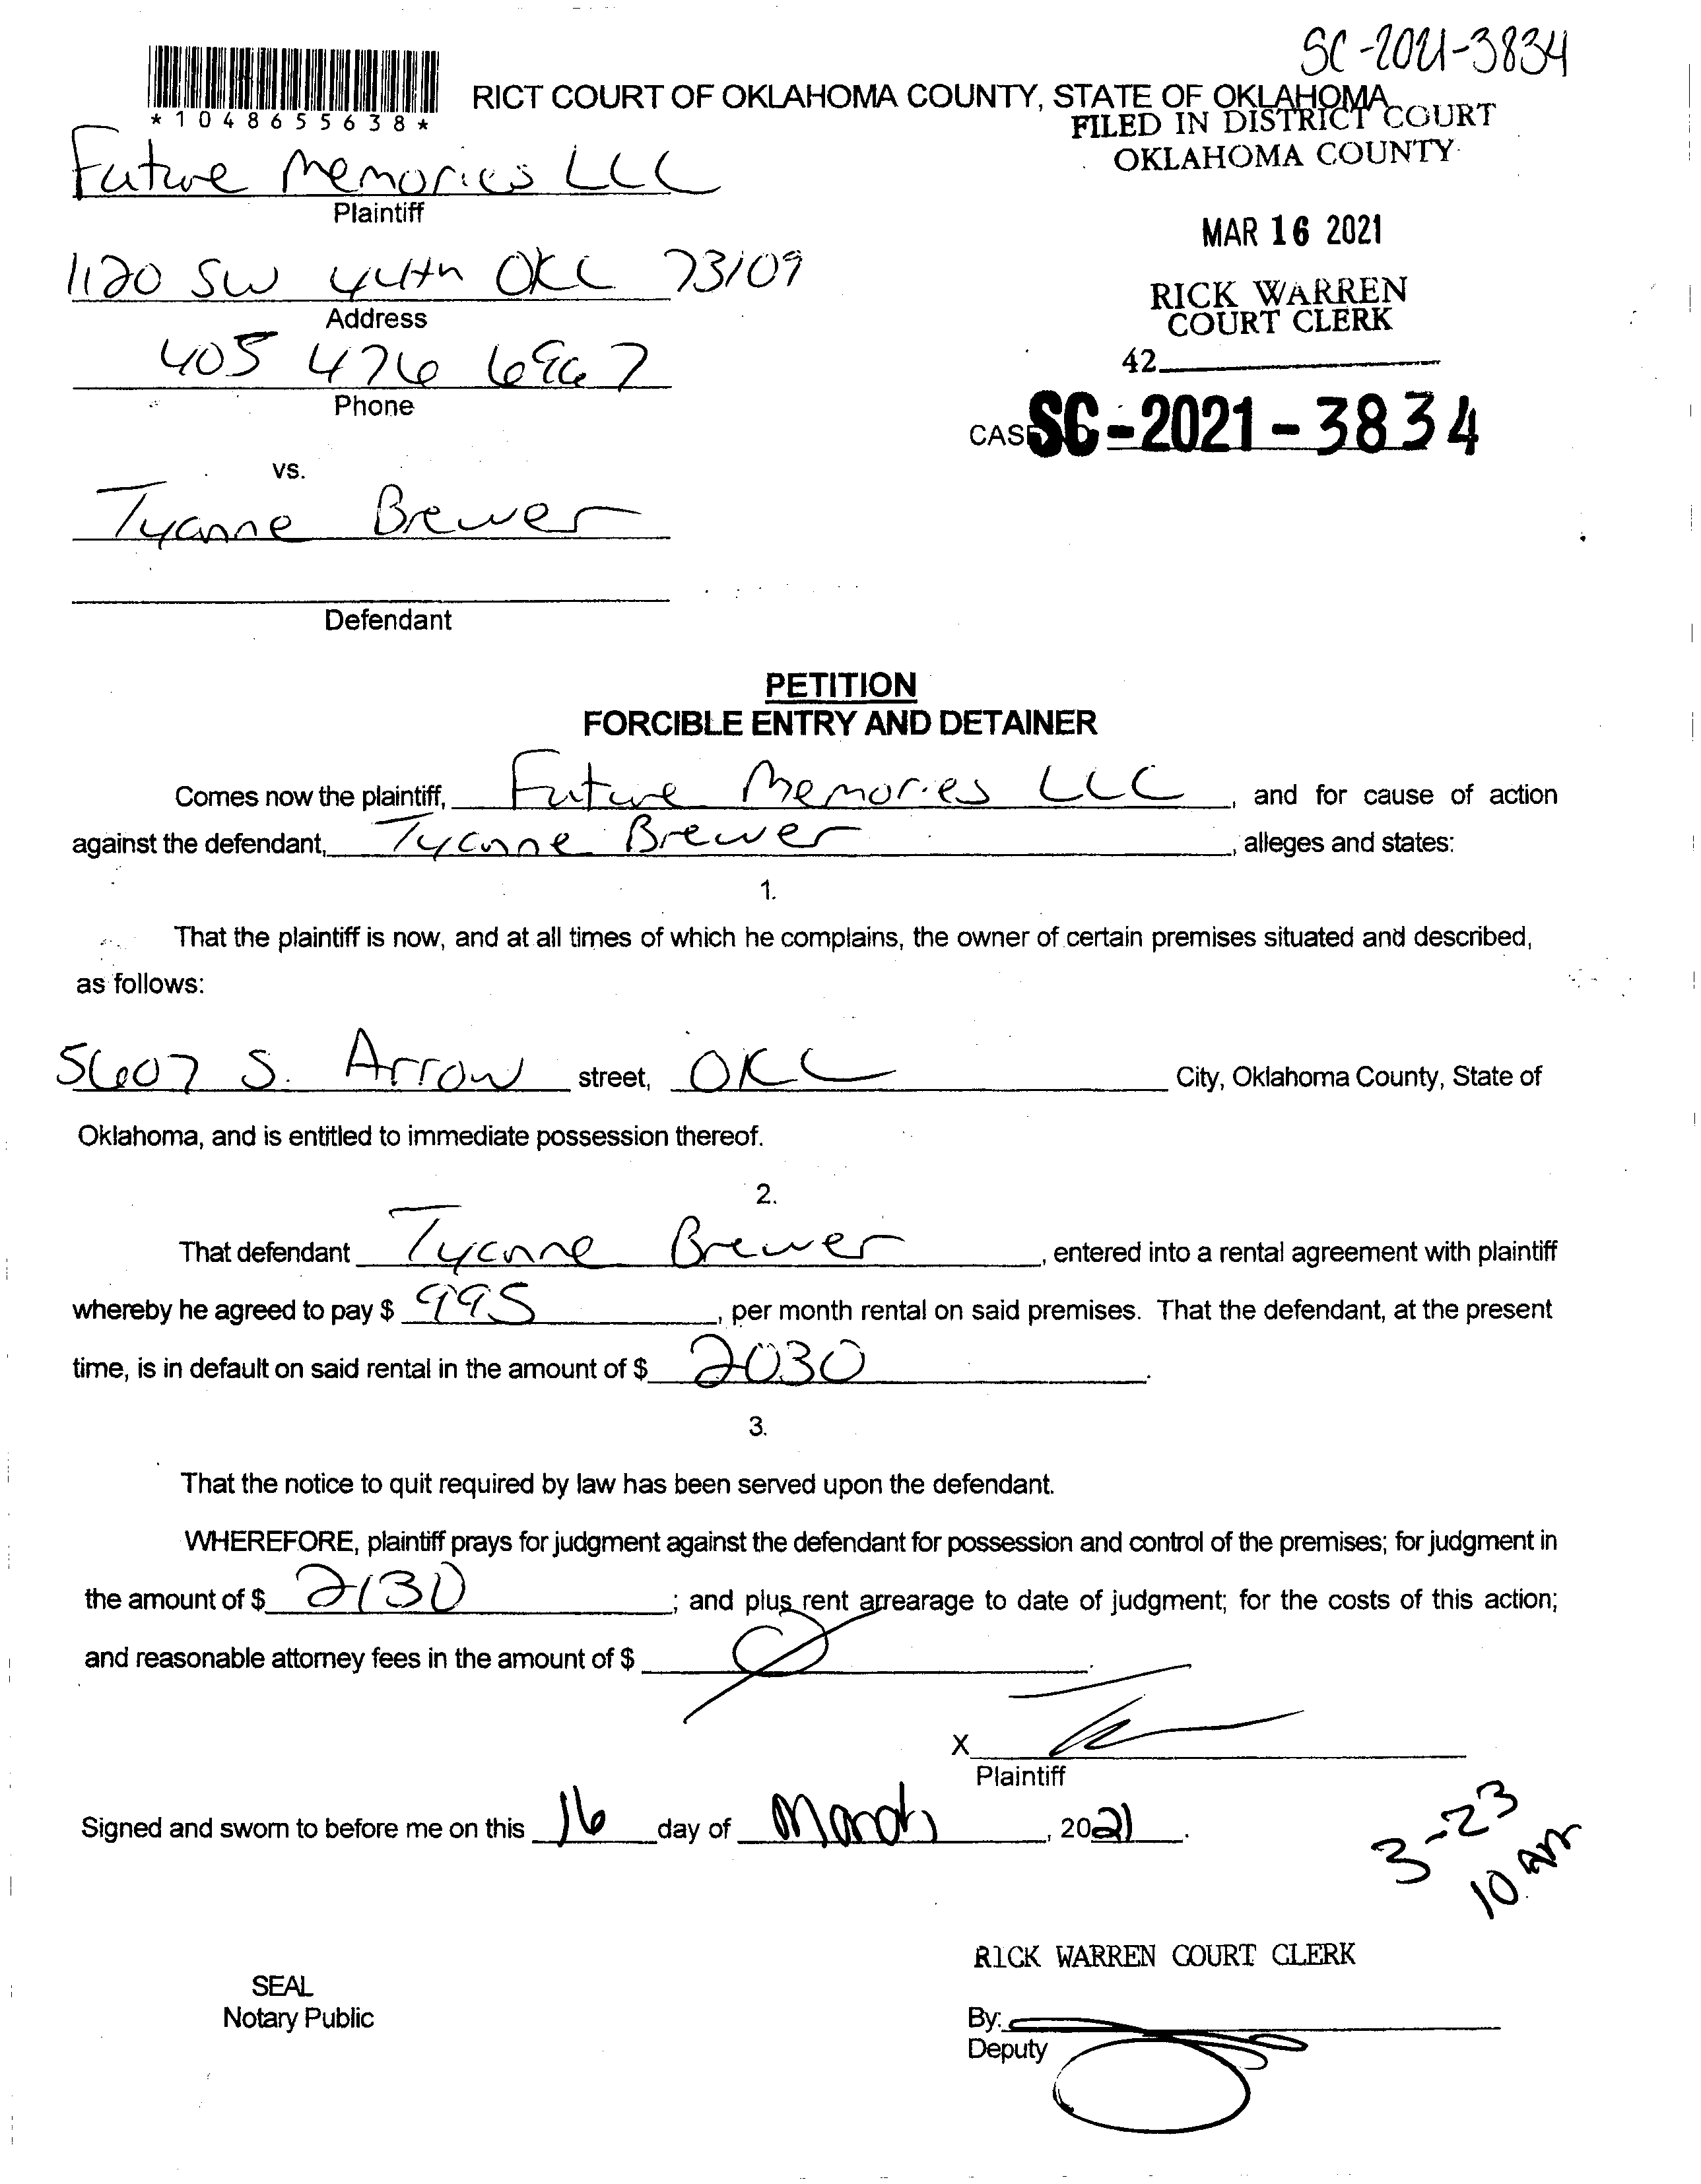 SC-2021-3834
RICT COURT OF OKLAHOMA COUNTY, STATE OF OKLAHOMA
*1048655638*
FILED IN DISTRICT COURT
OKLAHOMA COUNTY
Future Memories LLC
Plaintiff
MAR 16 2021
1120 SW 44th OKC 73109
Address
RICK WARREN
COURT CLERK
405 476 6967
Phone
42
CASE SC-2021-3834
vs.
Tyanne Brewer
Defendant
PETITION
FORCIBLE ENTRY AND DETAINER
Comes now the plaintiff, Future Memories LLC, and for cause of action
against the defendant, Tyanne Brewer, alleges and states:
1.
That the plaintiff is now, and at all times of which he complains, the owner of certain premises situated and described,
as follows:
5607 S. Arrow street, OKC City, Oklahoma County, State of
Oklahoma, and is entitled to immediate possession thereof.
2.
That defendant Tyanne Brewer, entered into a rental agreement with plaintiff
whereby he agreed to pay $ 995, per month rental on said premises. That the defendant, at the present
time, is in default on said rental in the amount of $ 2030.
3.
That the notice to quit required by law has been served upon the defendant.
WHEREFORE, plaintiff prays for judgment against the defendant for possession and control of the premises; for judgment in
the amount of $ 2130; and plus rent arrearage to date of judgment; for the costs of this action;
and reasonable attorney fees in the amount of $ 0.
X
Plaintiff
Signed and sworn to before me on this 16 day of March, 2021.
3-23
10 AM
RICK WARREN COURT CLERK
SEAL
Notary Public
By:
Deputy